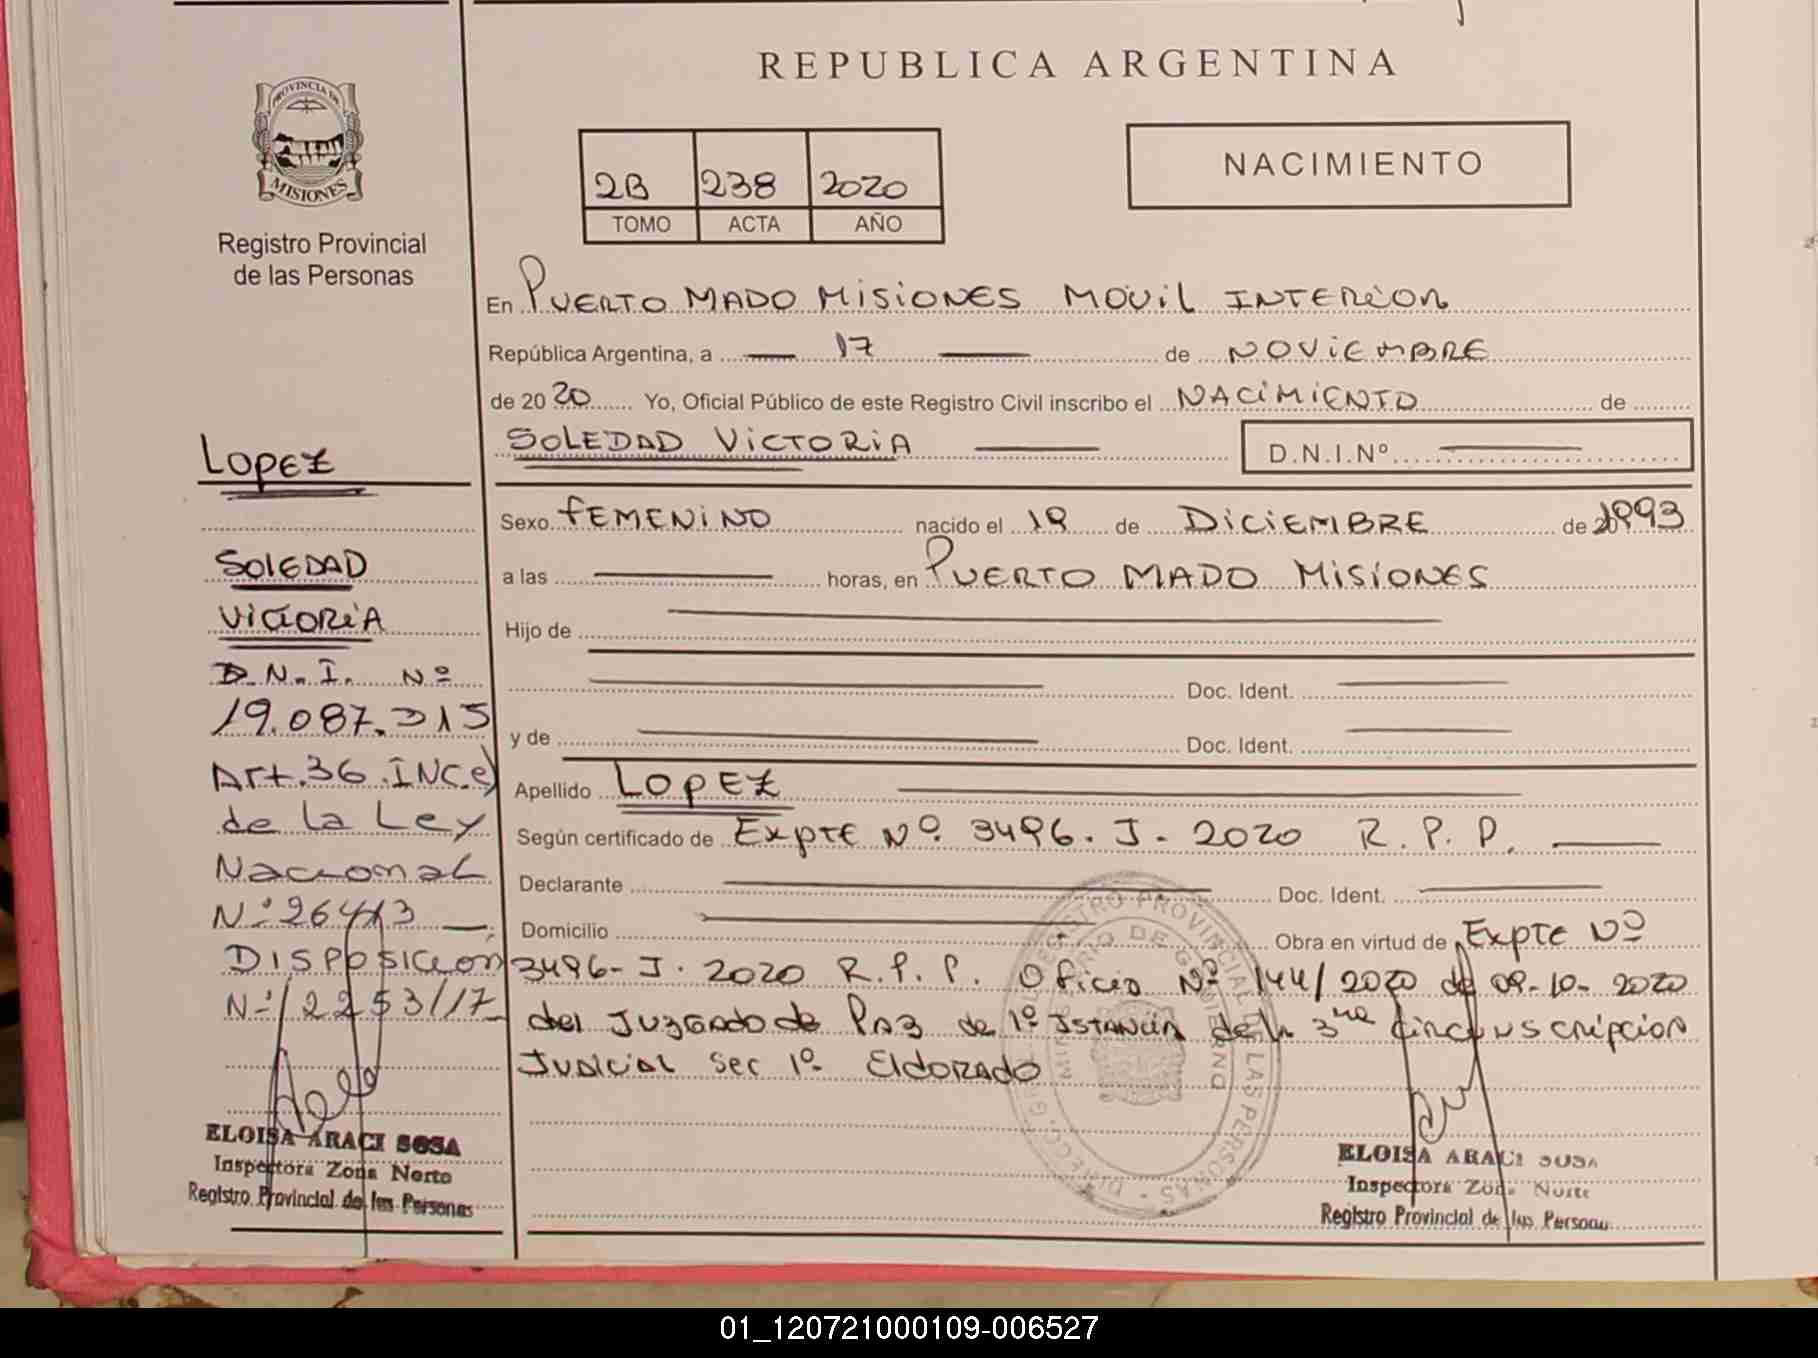 REPUBLICA ARGENTINA
PROVINCIA DE
MISIONES
Registro Provincial
de las Personas
2B 238 2020
TOMO ACTA AÑO
NACIMIENTO
En PUERTO MADO MISIONES MOVIL INTERIOR
República Argentina, a 17 de NOVIEMBRE
de 20 20 Yo, Oficial Público de este Registro Civil inscribo el NACIMIENTO de
SOLEDAD VICTORIA D.N.I.Nº
Sexo FEMENINO nacido el 19 de DICIEMBRE de 1993
a las horas, en PUERTO MADO MISIONES
Hijo de
Doc. Ident.
y de Doc. Ident.
Apellido LOPEZ
Según certificado de EXPTE Nº 3496-J-2020 R.P.P.
Declarante Doc. Ident.
Domicilio Obra en virtud de EXPTE Nº
3496-J-2020 R.P.P. Oficio Nº 144/2020 de 09-10-2020
del JUZGADO de PAZ de 1º ISTANCIA de la 3ra circunscripcion
JUDICIAL Sec 1º ELDORADO
LOPEZ
SOLEDAD
VICTORIA
D.N.I. Nº
19.087.315
Art.36 INC e)
de la Ley
Nacional
Nº 26413
DISPOSICION
Nº 2253/17
ELOISA ARACI SOSA
Inspectora Zona Norte
Registro Provincial de las Personas
ELOISA ARACI SOSA
Inspectora Zona Norte
Registro Provincial de las Personas
01_120721000109-006527